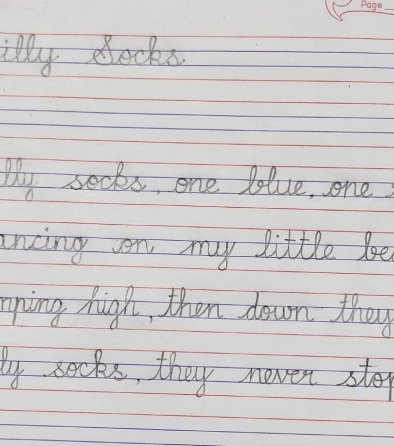 Page
illy Socks
lly socks, one blue, one
ancing on my little be
mping high, then down they
ly socks, they never stop